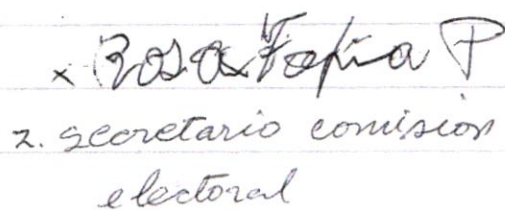 x Rosa Tapia P
2. secretario comision
electoral